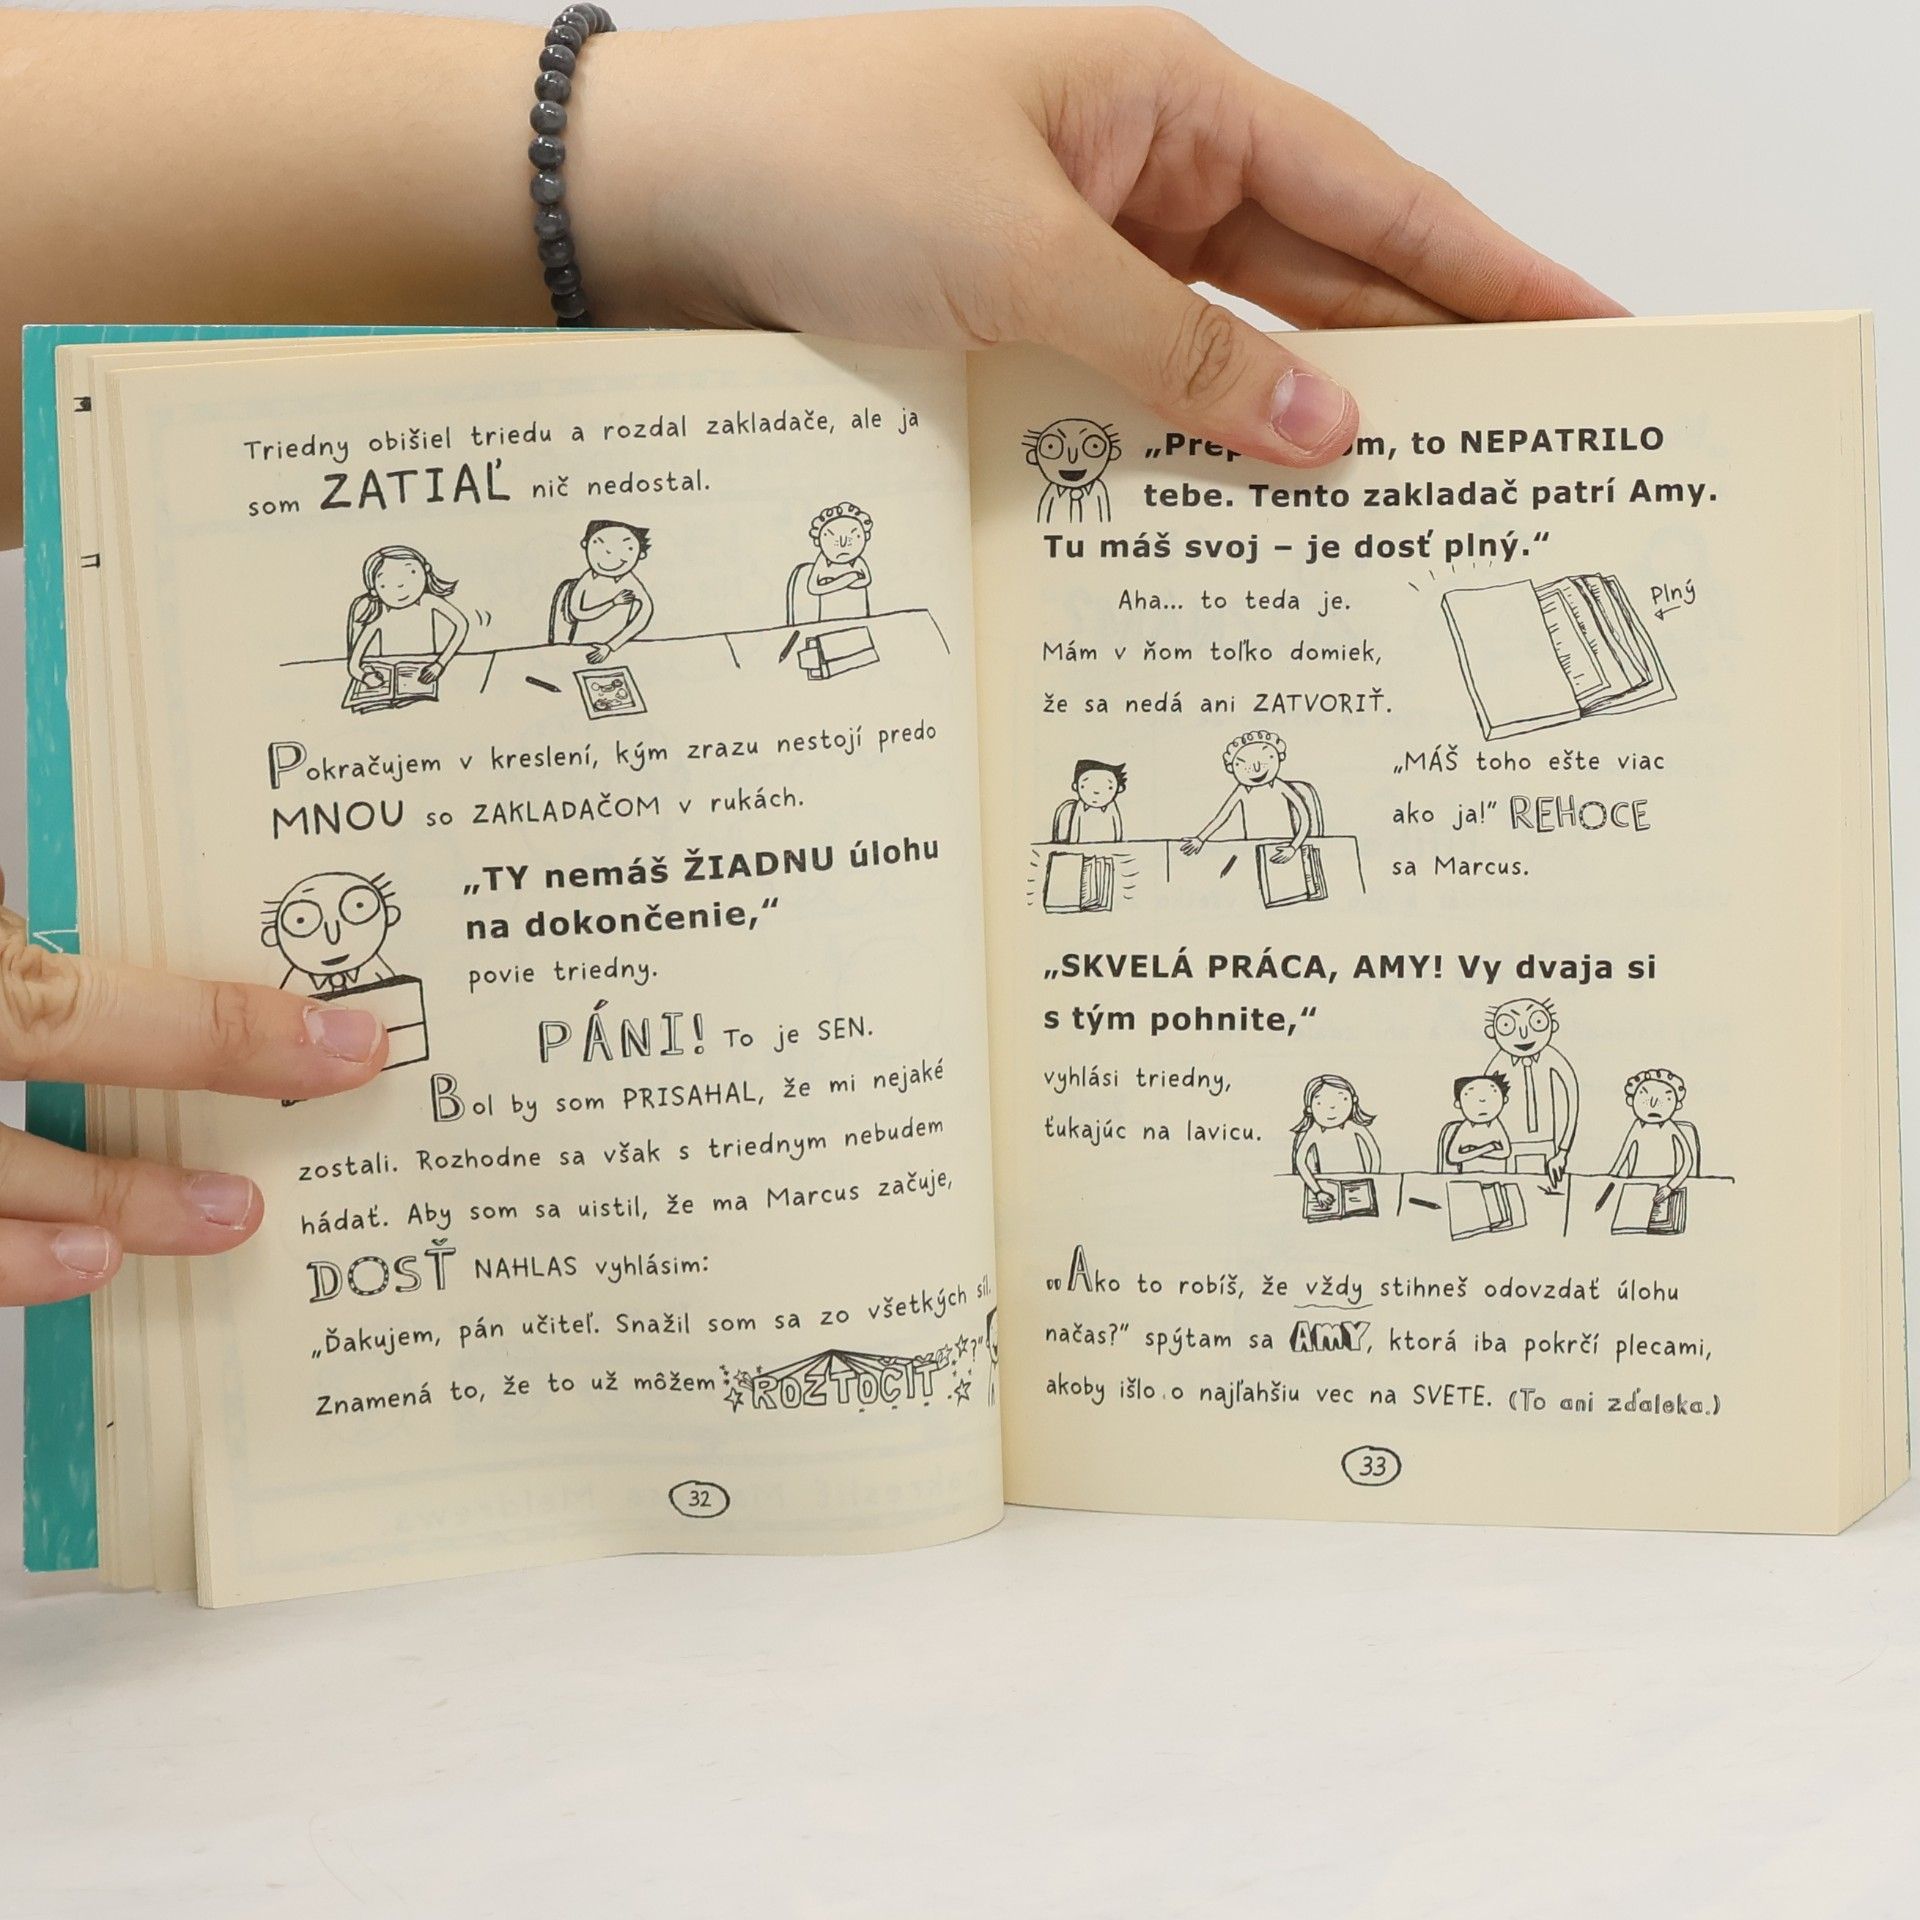 Triedny obišiel triedu a rozdal zakladače, ale ja
som ZATIAĽ nič nedostal.
Pokračujem v kreslení, kým zrazu nestojí predo
MNOU so ZAKLADAČOM v rukách.
„TY nemáš ŽIADNU úlohu
na dokončenie,“
povie triedny.
PÁNI! To je SEN.
Bol by som PRISAHAL, že mi nejaké
zostali. Rozhodne sa však s triednym nebudem
hádať. Aby som sa uistil, že ma Marcus začuje,
DOSŤ NAHLAS vyhlásim:
„Ďakujem, pán učiteľ. Snažil som sa zo všetkých síl.
Znamená to, že to už môžem ROZTOČIŤ?“
32
to NEPATRILO
tebe. Tento zakladač patrí Amy.
Tu máš svoj – je dosť plný.“
Aha... to teda je.
Plný
Mám v ňom toľko domiek,
že sa nedá ani ZATVORIŤ.
„MÁŠ toho ešte viac
ako ja!“ REHOCE
sa Marcus.
„SKVELÁ PRÁCA, AMY! Vy dvaja si
s tým pohnite,“
vyhlási triedny,
ťukajúc na lavicu.
„Ako to robíš, že vždy stihneš odovzdať úlohu
načas?“ spýtam sa AMY, ktorá iba pokrčí plecami,
akoby išlo o najľahšiu vec na SVETE. (To ani zďaleka.)
33